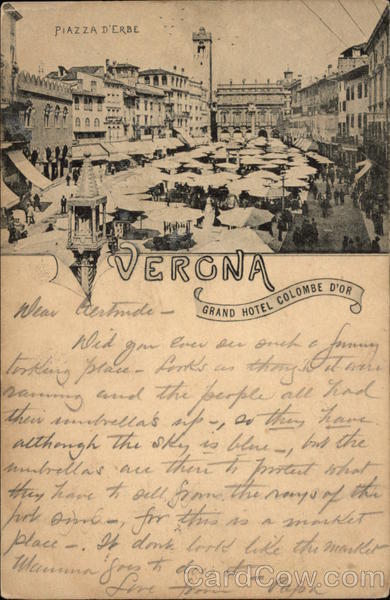 PIAZZA D'ERBE
VERONA
GRAND HOTEL COLOMBE D'OR
Dear Gertrude -
Did you ever see such a funny
looking place - Looks as though it were
raining and the people all had
their umbrella's up -, so they have
although the sky is blue -, but the
umbrellas are there to protect what
they have to sell from the rays of the
hot sun -, for this is a market
place -. It dont look like the market
Mamma goes to does it
Love from Papa
CardCow.com